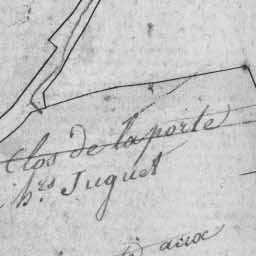 Clos de la porte
h.rs Juguet
aux